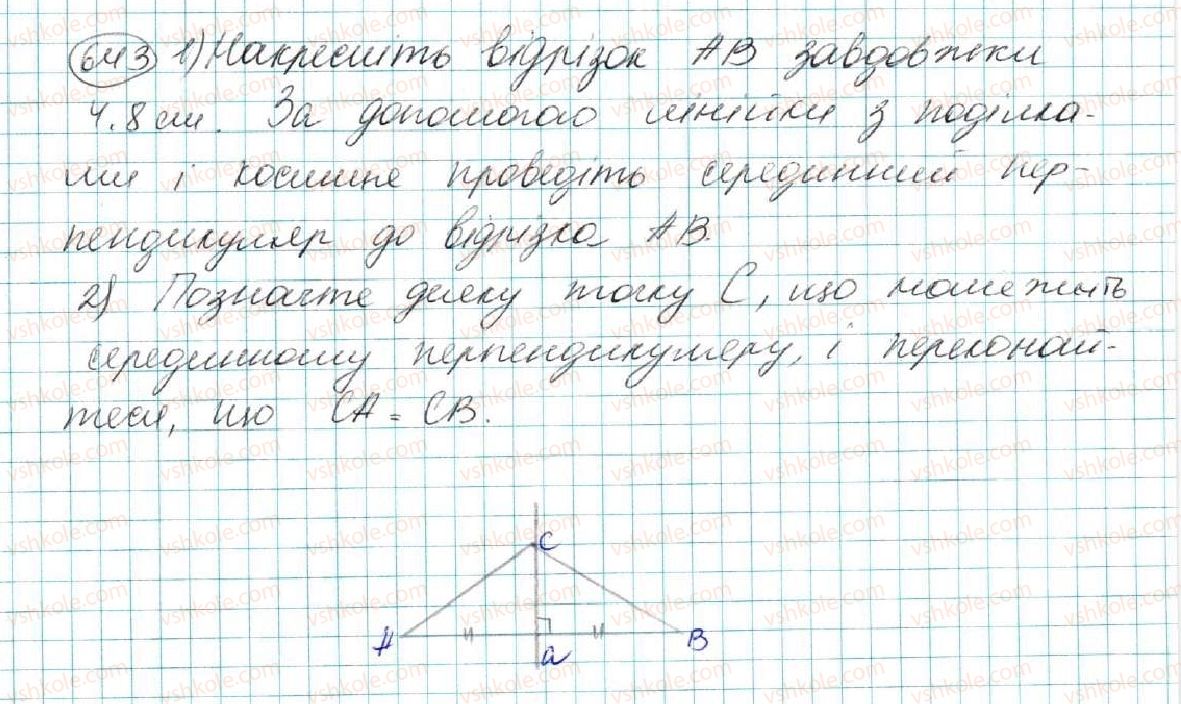 643 1) Накресліть відрізок AB завдовжки
4,8 см. За допомогою лінійки з поділка-
ми і косинця проведіть серединний пер-
пендикуляр до відрізка AB.
2) Позначте деяку точку C, що належить
серединному перпендикуляру, і переконай-
теся, що CA = CB.
C
A a B
vshkole.com